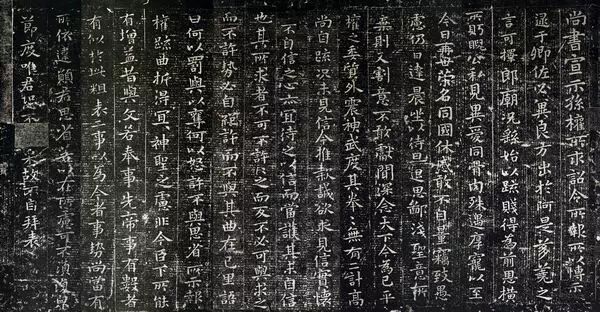 尚書宣示孫權所求詔令所報所以博示
逮于卿佐必冀良方出於阿是芻蕘之
言可擇郎廟況繇始以疏賤得為前恩橫
所盱睨公私見異愛同骨肉殊遇厚寵以至
今日再世榮名同國休慼敢不自量竊致愚
慮仍日達晨坐以待旦退思鄙淺聖意所
棄則又割意不敢獻聞深念天下今為已平
權之委質外震神武度其拳拳無有二計高
尚自疏況未見信今推款誠欲求見信實懷
不自信之心亦宜待之以信而當護其未自信
也其所求者不可不許許之而反不必可與求之
而不許勢必自絕許而不與其曲在己里語
曰何以罰與以奪何以怒許不與思省所示報
權疏曲折得宜宜神聖之慮非今臣下所能
有增益昔與文若奉事先帝事有數者
有似於此粗表二事以為今者事勢尚當有
所依違願君思省若以在所慮可不須復貌
節度唯君恐不采故不自拜表